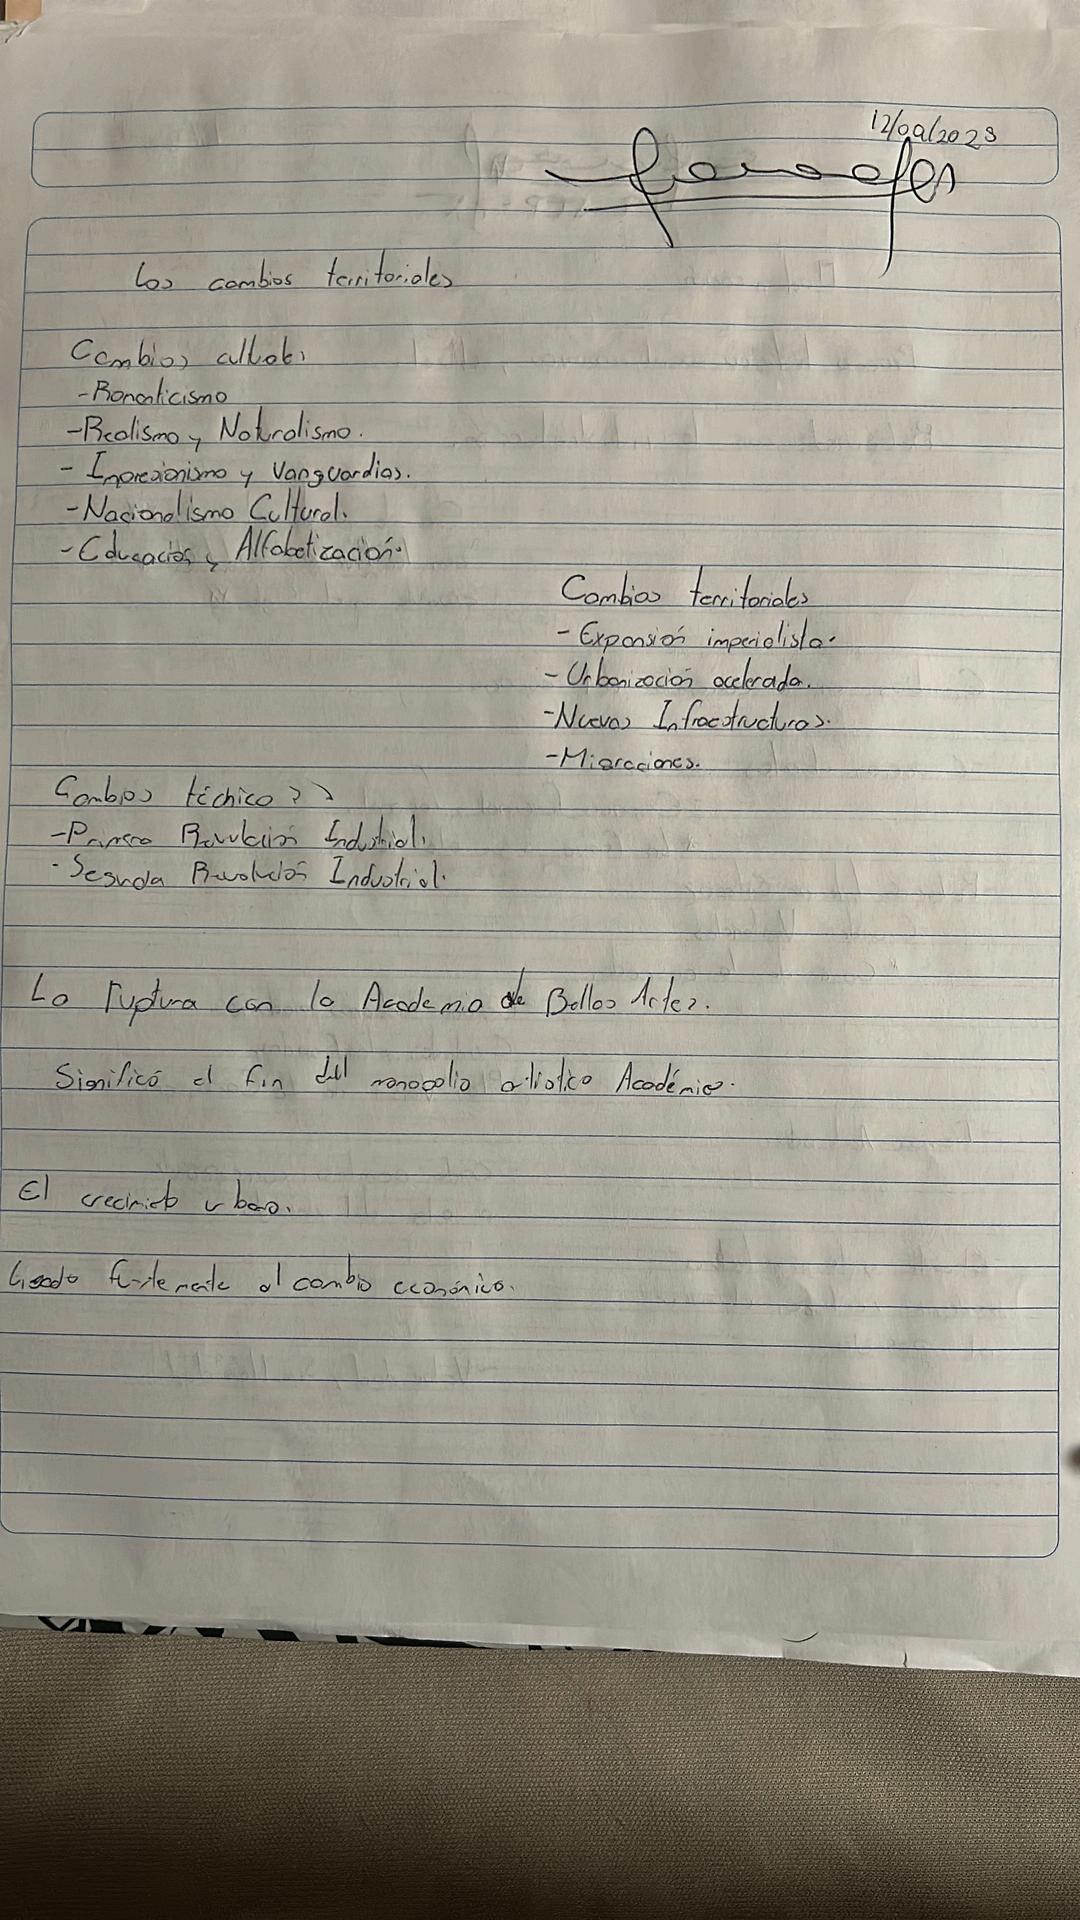 12/09/2023
Los cambios territoriales
Cambios
- Romanticismo
- Realismo y Naturalismo.
- Impresionismo y Vanguardias.
- Nacionalismo Cultural.
- Educación y Alfabetización.
Cambios territoriales
- Expansión imperialista.
- Urbanización acelerada.
- Nuevas Infraestructuras.
- Migraciones.
Cambios técnico
- Primera Revolución Industrial.
- Segunda Revolución Industrial.
La ruptura con la Academia de Bellas Artes.
Significó el fin del monopolio artístico Académico.
El urbano.
Ligado fuertemente al cambio económico.